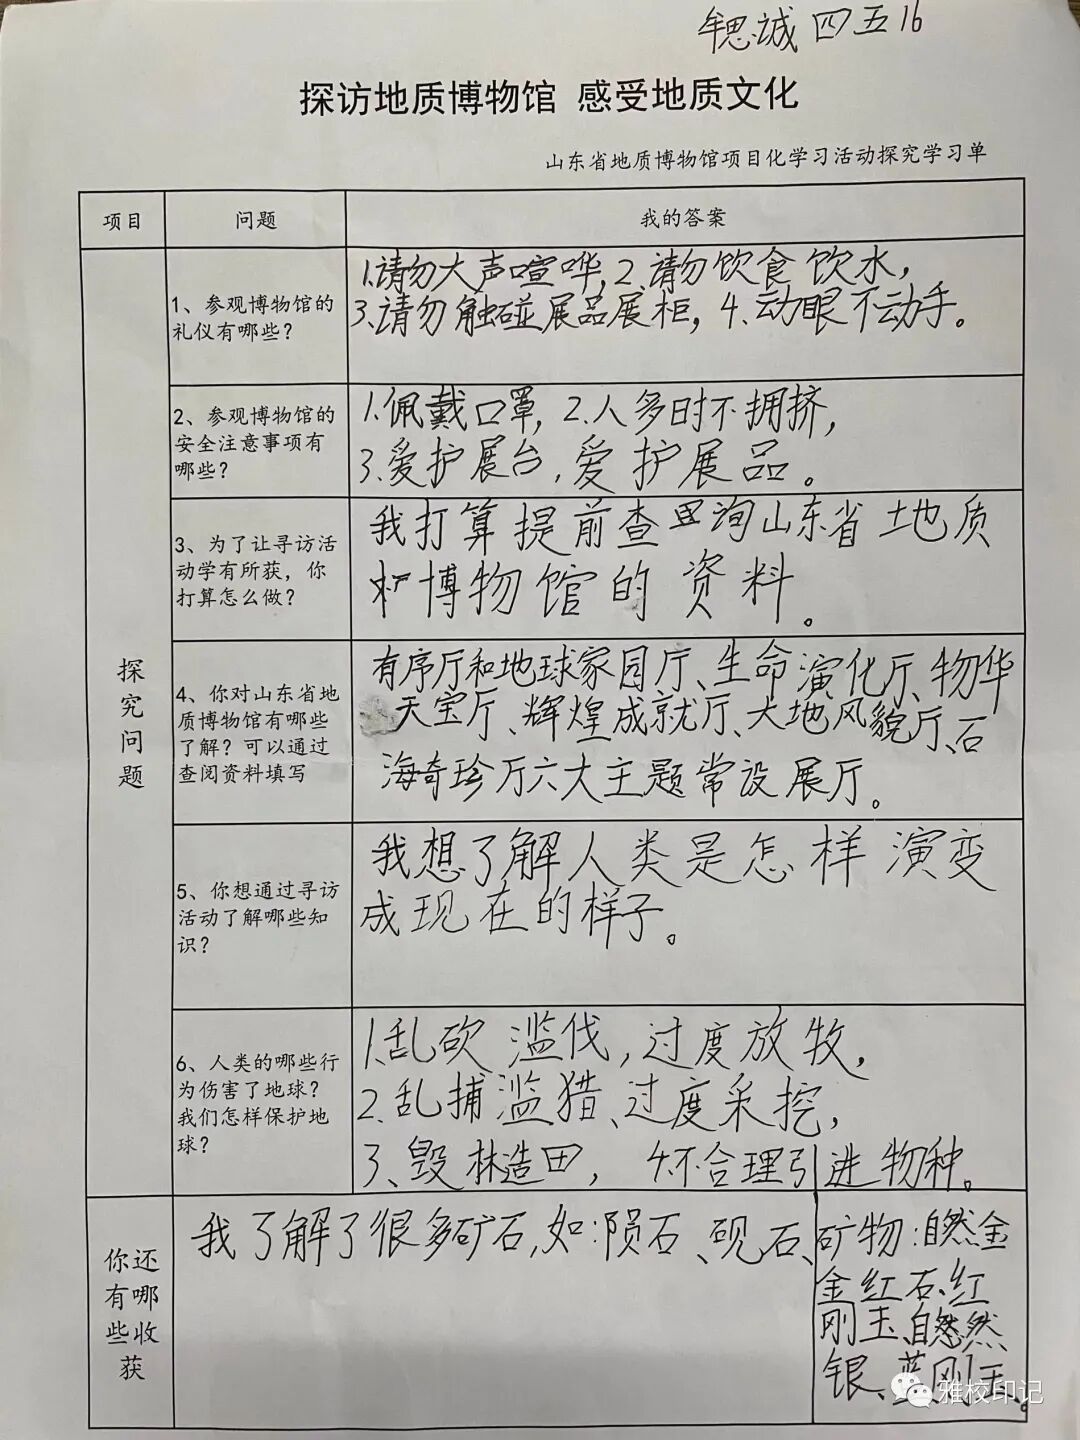 思诚 四五16
探访地质博物馆 感受地质文化
山东省地质博物馆项目化学习活动探究学习单
项目 问题 我的答案
探究问题
1、参观博物馆的
礼仪有哪些？
1.请勿大声喧哗，2.请勿饮食饮水，
3、请勿触碰展品展柜，4、动眼不动手。
2、参观博物馆的
安全注意事项有
哪些？
1.佩戴口罩，2.人多时不拥挤，
3.爱护展台，爱护展品。
3、为了让寻访活
动学有所获，你
打算怎么做？
我打算提前查询山东省地质
博物馆的资料。
4、你对山东省地
质博物馆有哪些
了解？可以通过
查阅资料填写
有序厅和地球家园厅、生命演化厅、物华
天宝厅、辉煌成就厅、大地风貌厅、石
海奇珍厅六大主题常设展厅。
5、你想通过寻访
活动了解哪些知
识？
我想了解人类是怎样演变
成现在的样子。
6、人类的哪些行
为伤害了地球？
我们怎样保护地
球？
1.乱砍滥伐，过度放牧，
2.乱捕滥猎、过度采挖，
3、毁林造田，4.不合理引进物种。
你还有哪些收获
我了解了很多矿石，如：陨石、砚石、
矿物：自然金
金红石、红
刚玉、自然
银、蓝刚玉。
雅校印记